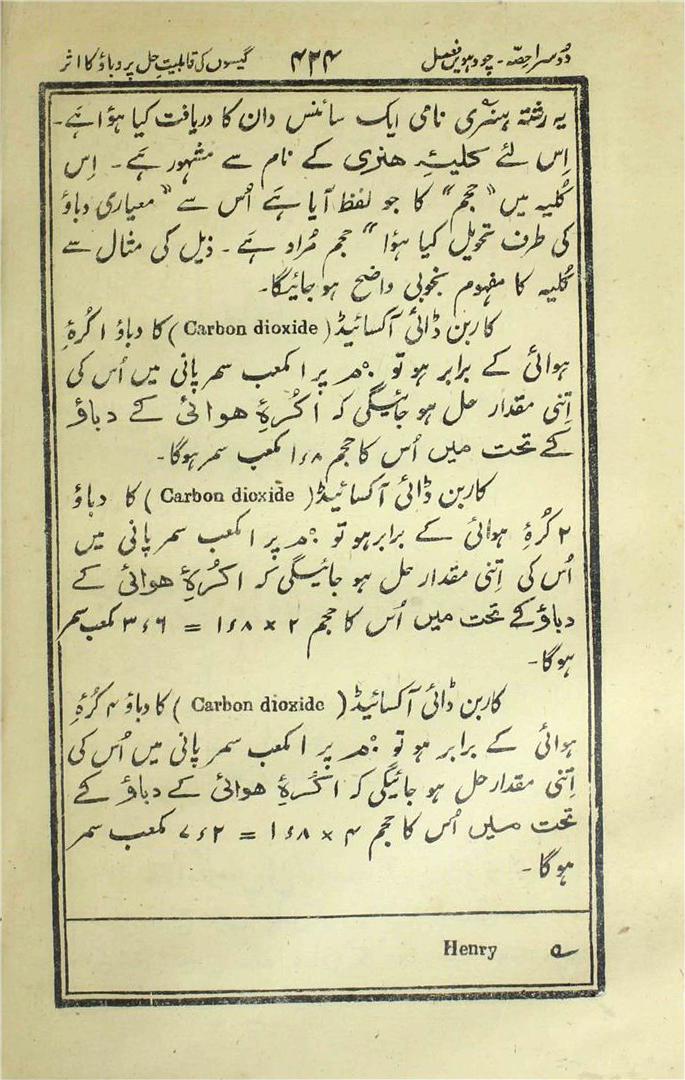 دُوسرا حِصّہ ۔ چودہویں فصل ۴۲۴ گیسوں کی قابلیتِ حل پر دباؤ کا اثر
یہ رشتہ ہنری نامی ایک سائنس دان کا دریافت کیا ہؤا ہے۔
اِس لئے کلیۂ ھنری کے نام سے مشہور ہے۔ اِس
کُلیہ میں "حجم" کا جو لفظ آیا ہے اُس سے "معیاری دباؤ
کی طرف تحویل کیا ہؤا" حجم مُراد ہے۔ ذیل کی مثال سے
کُلیہ کا مفہوم بخوبی واضح ہو جائیگا۔
کاربن ڈائی آکسائیڈ (Carbon dioxide) کا دباؤ ۱ کُرۂ
ہوائی کے برابر ہو تو ۰°م پر ۱ مکعب سمر پانی میں اُس کی
اِتنی مقدار حل ہو جائیگی کہ ۱ کُرۂ ھوائی کے دباؤ
کے تحت میں اُس کا حجم ۱ء۸ مکعب سمر ہوگا۔
کاربن ڈائی آکسائیڈ (Carbon dioxide) کا دباؤ
۲ کُرۂ ہوائی کے برابر ہو تو ۰°م پر ۱ مکعب سمر پانی میں
اُس کی اِتنی مقدار حل ہو جائیگی کہ ۱ کُرۂ ھوائی کے
دباؤ کے تحت میں اُس کا حجم ۲ × ۱ء۸ = ۳ء۶ مکعب سمر
ہوگا۔
کاربن ڈائی آکسائیڈ (Carbon dioxide) کا دباؤ ۴ کُرۂ
ہوائی کے برابر ہو تو ۰°م پر ۱ مکعب سمر پانی میں اُس کی
اِتنی مقدار حل ہو جائیگی کہ ۱ کُرۂ ھوائی کے دباؤ کے
تحت میں اُس کا حجم ۴ × ۱ء۸ = ۷ء۲ مکعب سمر
ہوگا۔
Henry